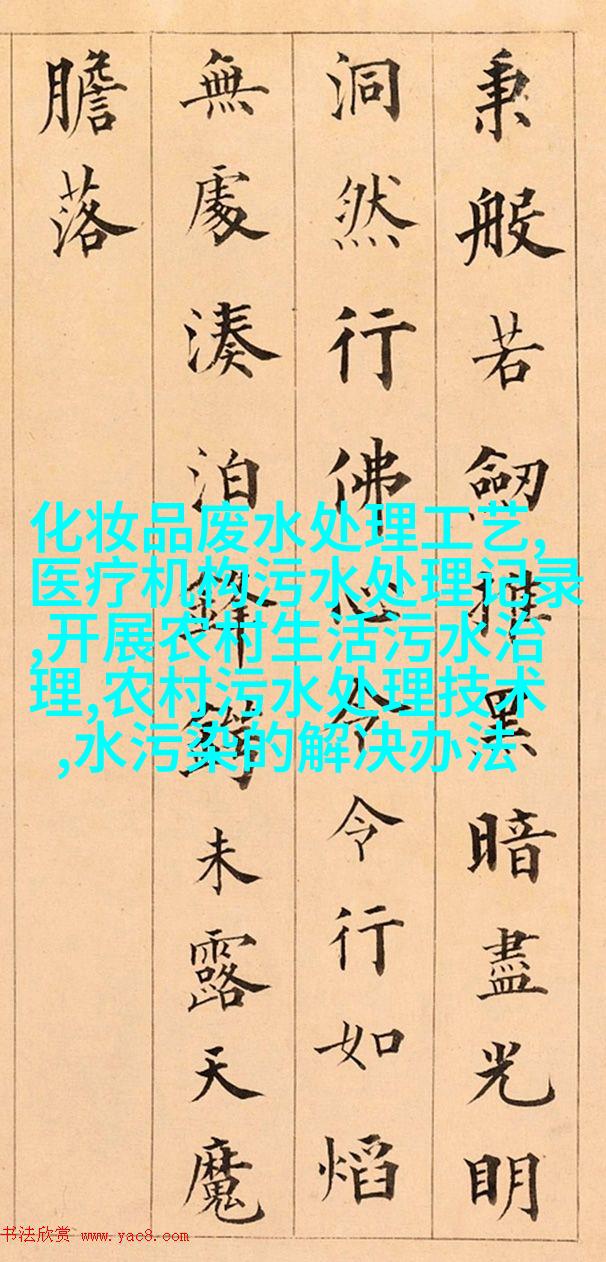 秉般若劒摧黑暗盡光明
洞然行佛心令令行如熖
無處湊泊鋒鍔未露天魔
膽落
化妆品废水处理工艺,
医疗机构污水处理记录
,开展农村生活污水治
理,农村污水处理技术
,水污染的解决办法
书法欣赏 www.yac8.com